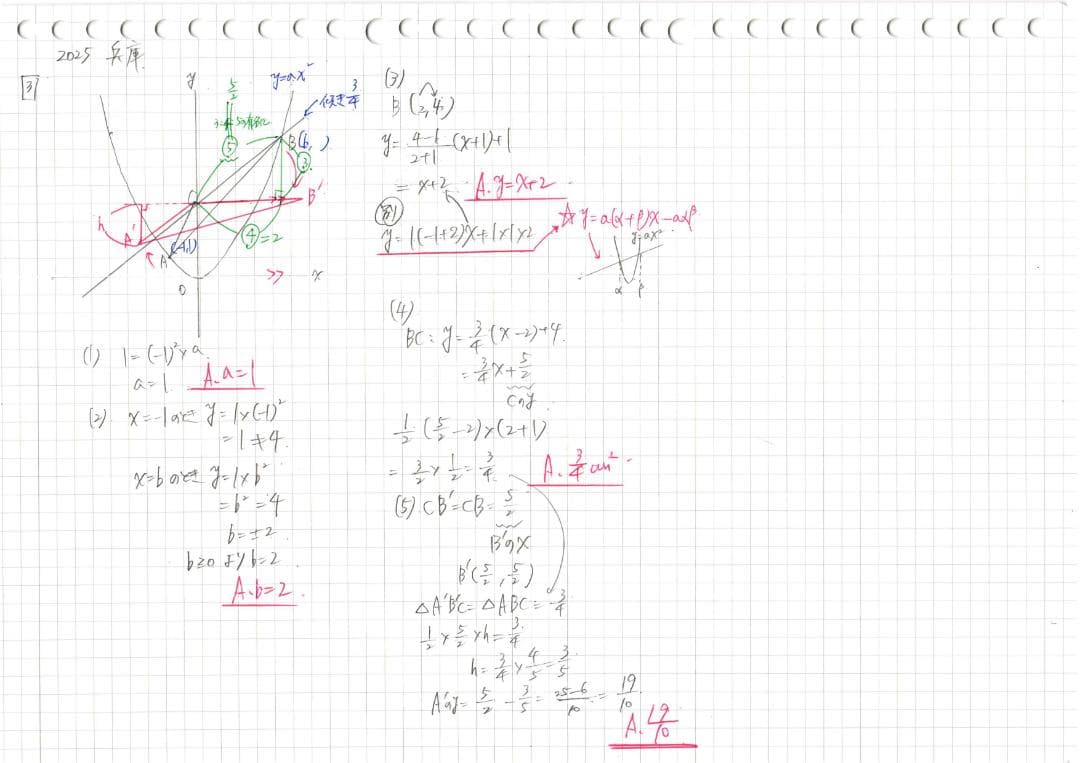 2025 兵庫
3
y
y=ax²
5/2
傾き 3/4
⑤
B(b, )
③
B'
C
h
A'
(-1,1)
A
④=2
x
O
(1) 1=(-1)²×a
a=1 A. a=1
(2) x=-1のとき y=1×(-1)²
=1≠4
x=bのとき y=1×b²
=b²=4
b=±2
b≧0より b=2
A. b=2
(3)
B(2,4)
y=(4-1)/(2+1)(x+1)+1
=x+2 A. y=x+2
(別)
y=1(-1+2)x+1×1×2
☆ y=a(α+β)x-aαβ
y=ax²
α β
(4)
BC: y=3/4(x-2)+4
=3/4x+5/2
Cのy
1/2(5/2-2)×(2+1)
=3/2×1/2=3/4 A. 3/4cm²
(5) CB'=CB=5/2
B'のx
B'(5/2, 5/2)
△A'B'C=△ABC=3/4
1/2×5/2×h=3/4
h=3/4×4/5=3/5
A'のy=5/2-3/5=(25-6)/10=19/10
A. 19/10